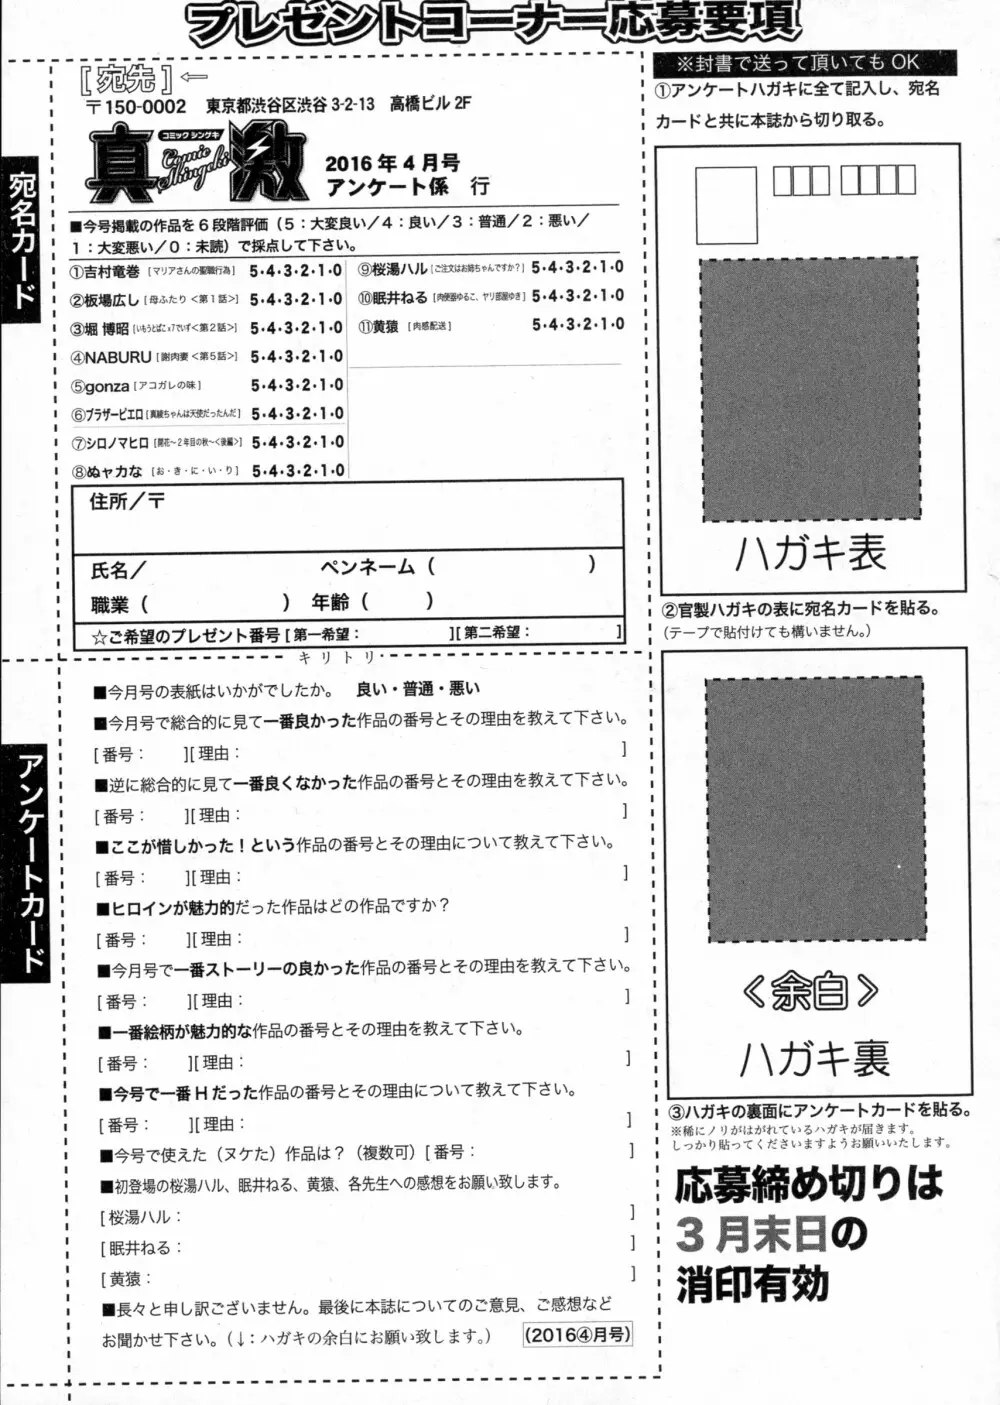 プレゼントコーナー応募要項
[宛先]←
〒150-0002　東京都渋谷区渋谷 3-2-13　高橋ビル 2F
コミック シンゲキ
真激
Comic Shingeki
2016 年 4 月号
アンケート係　行
宛名カード
■今号掲載の作品を 6 段階評価（5：大変良い／4：良い／3：普通／2：悪い／
1：大変悪い／0：未読）で採点して下さい。
①吉村竜巻 [マリアさんの聖職行為] 5・4・3・2・1・0
②板場広し [母ふたり <第1話>] 5・4・3・2・1・0
③堀 博昭 [いもうとぱにx7でいず<第2話>] 5・4・3・2・1・0
④NABURU [謝肉妻 <第5話>] 5・4・3・2・1・0
⑤gonza [アコガレの味] 5・4・3・2・1・0
⑥ブラザーピエロ [真綾ちゃんは天使だったんだ] 5・4・3・2・1・0
⑦シロノマヒロ [開花～2年目の秋～<後編>] 5・4・3・2・1・0
⑧ぬャカな [お・き・に・い・り] 5・4・3・2・1・0
⑨桜湯ハル [ご注文はお姉ちゃんですか？] 5・4・3・2・1・0
⑩眠井ねる [肉便器ゆるこ、ヤリ部屋ゆき] 5・4・3・2・1・0
⑪黄猿 [肉感配送] 5・4・3・2・1・0
住所／〒
氏名／　ペンネーム（　）
職業（　）　年齢（　）
☆ご希望のプレゼント番号 [ 第一希望：　][ 第二希望：　]
キリトリ
アンケートカード
■今月号の表紙はいかがでしたか。　良い・普通・悪い
■今月号で総合的に見て一番良かった作品の番号とその理由を教えて下さい。
[ 番号：　][ 理由：　]
■逆に総合的に見て一番良くなかった作品の番号とその理由を教えて下さい。
[ 番号：　][ 理由：　]
■ここが惜しかった！という作品の番号とその理由について教えて下さい。
[ 番号：　][ 理由：　]
■ヒロインが魅力的だった作品はどの作品ですか？
[ 番号：　][ 理由：　]
■今月号で一番ストーリーの良かった作品の番号とその理由を教えて下さい。
[ 番号：　][ 理由：　]
■一番絵柄が魅力的な作品の番号とその理由を教えて下さい。
[ 番号：　][ 理由：　]
■今号で一番 H だった作品の番号とその理由について教えて下さい。
[ 番号：　][ 理由：　]
■今号で使えた（ヌケた）作品は？（複数可）[ 番号：　]
■初登場の桜湯ハル、眠井ねる、黄猿、各先生への感想をお願い致します。
[ 桜湯ハル：　]
[ 眠井ねる：　]
[ 黄猿：　]
■長々と申し訳ございません。最後に本誌についてのご意見、ご感想など
お聞かせ下さい。（↓：ハガキの余白にお願い致します。）　（2016④月号）
※封書で送って頂いてもOK
①アンケートハガキに全て記入し、宛名
カードと共に本誌から切り取る。
ハガキ表
②官製ハガキの表に宛名カードを貼る。
（テープで貼付けても構いません。）
＜余白＞
ハガキ裏
③ハガキの裏面にアンケートカードを貼る。
※稀にノリがはがれているハガキが届きます。
しっかり貼ってくださいますようお願いいたします。
応募締め切りは
3 月末日の
消印有効